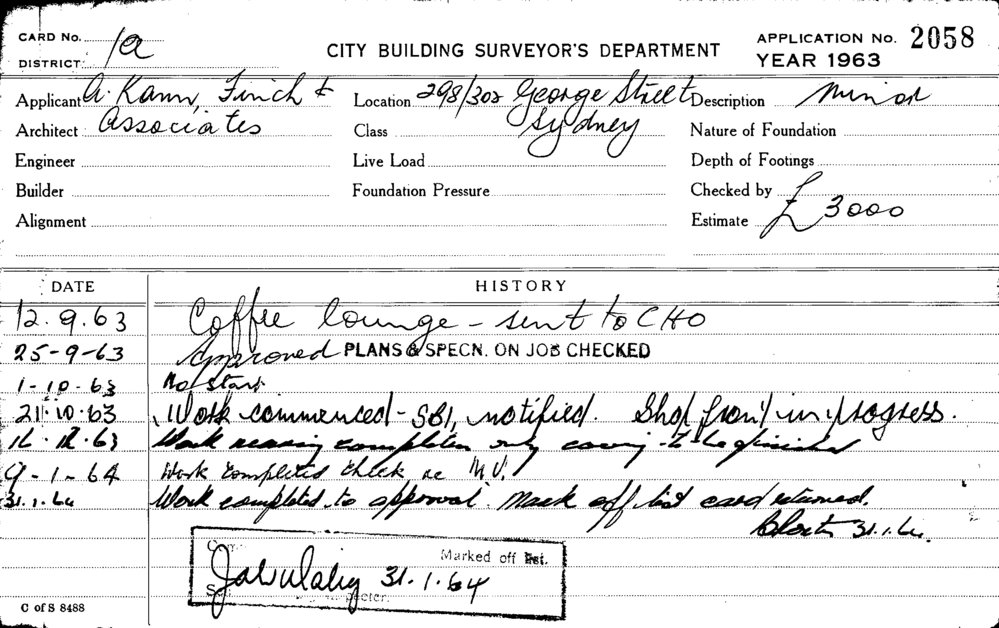 CARD No. 1a
DISTRICT:
CITY BUILDING SURVEYOR'S DEPARTMENT
APPLICATION No. 2058
YEAR 1963
Applicant A. Kann, Finch & Location 298/302 George Street Description Minor
Architect Associates Class Sydney Nature of Foundation
Engineer Live Load Depth of Footings
Builder Foundation Pressure Checked by
Alignment Estimate £3000
DATE HISTORY
12.9.63 Coffee lounge - sent to CHO
25-9-63 Approved PLANS & SPECN. ON JOB CHECKED
1-10-63 No start
21.10.63 Work commenced - SBI, notified. Shop front in progress.
12.63 Work nearing completion only to be finished
9-1-64 Work completed check re M.V.
31.1.64 Work completed to approval. Mark off list card returned.
31.1.64.
Marked off list.
31.1.64
C of S 8488